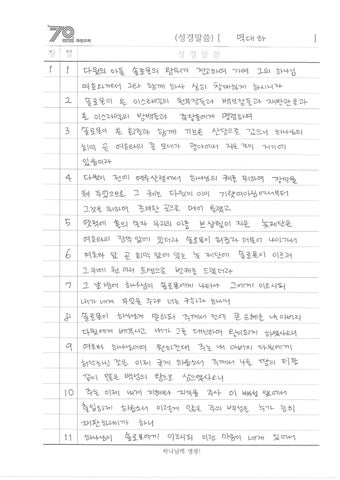 70 제원교회
(성경말씀) [ 역대하 ]
장 절 성경말씀
1 1 다윗의 아들 솔로몬의 왕위가 견고하여 가며 그의 하나님
여호와께서 그와 함께 하사 심히 창대하게 하시니라
2 솔로몬이 온 이스라엘의 천부장들과 백부장들과 재판관들과
온 이스라엘의 방백들과 족장들에게 명령하여
3 솔로몬이 온 회중과 함께 기브온 산당으로 갔으니 하나님의
회막 곧 여호와의 종 모세가 광야에서 지은 것이 거기에
있음이라
4 다윗이 전에 예루살렘에서 하나님의 궤를 위하여 장막을
쳐 두었으므로 그 궤는 다윗이 이미 기럇여아림에서부터
그것을 위하여 준비한 곳으로 메어 올렸고
5 옛적에 훌의 손자 우리의 아들 브살렐이 지은 놋제단은
여호와의 장막 앞에 있더라 솔로몬이 회중과 더불어 나아가서
6 여호와 앞 곧 회막 앞에 있는 놋 제단에 솔로몬이 이르러
그 위에 천 마리 희생으로 번제를 드렸더라
7 그 날 밤에 하나님이 솔로몬에게 나타나 그에게 이르시되
내가 네게 무엇을 주랴 너는 구하라 하시니
8 솔로몬이 하나님께 말하되 주께서 전에 큰 은혜를 내 아버지
다윗에게 베푸시고 내가 그를 대신하여 왕이 되게 하셨사오니
9 여호와 하나님이여 원하건대 주는 내 아버지 다윗에게
허락하신 것을 이제 굳게 하옵소서 주께서 나를 땅의 티끌
같이 많은 백성의 왕으로 삼으셨사오니
10 주는 이제 내게 지혜와 지식을 주사 이 백성 앞에서
출입하게 하옵소서 이렇게 많은 주의 백성을 누가 능히
재판하리이까 하니
11 하나님이 솔로몬에게 이르시되 이런 마음이 네게 있어서
하나님께 영광!